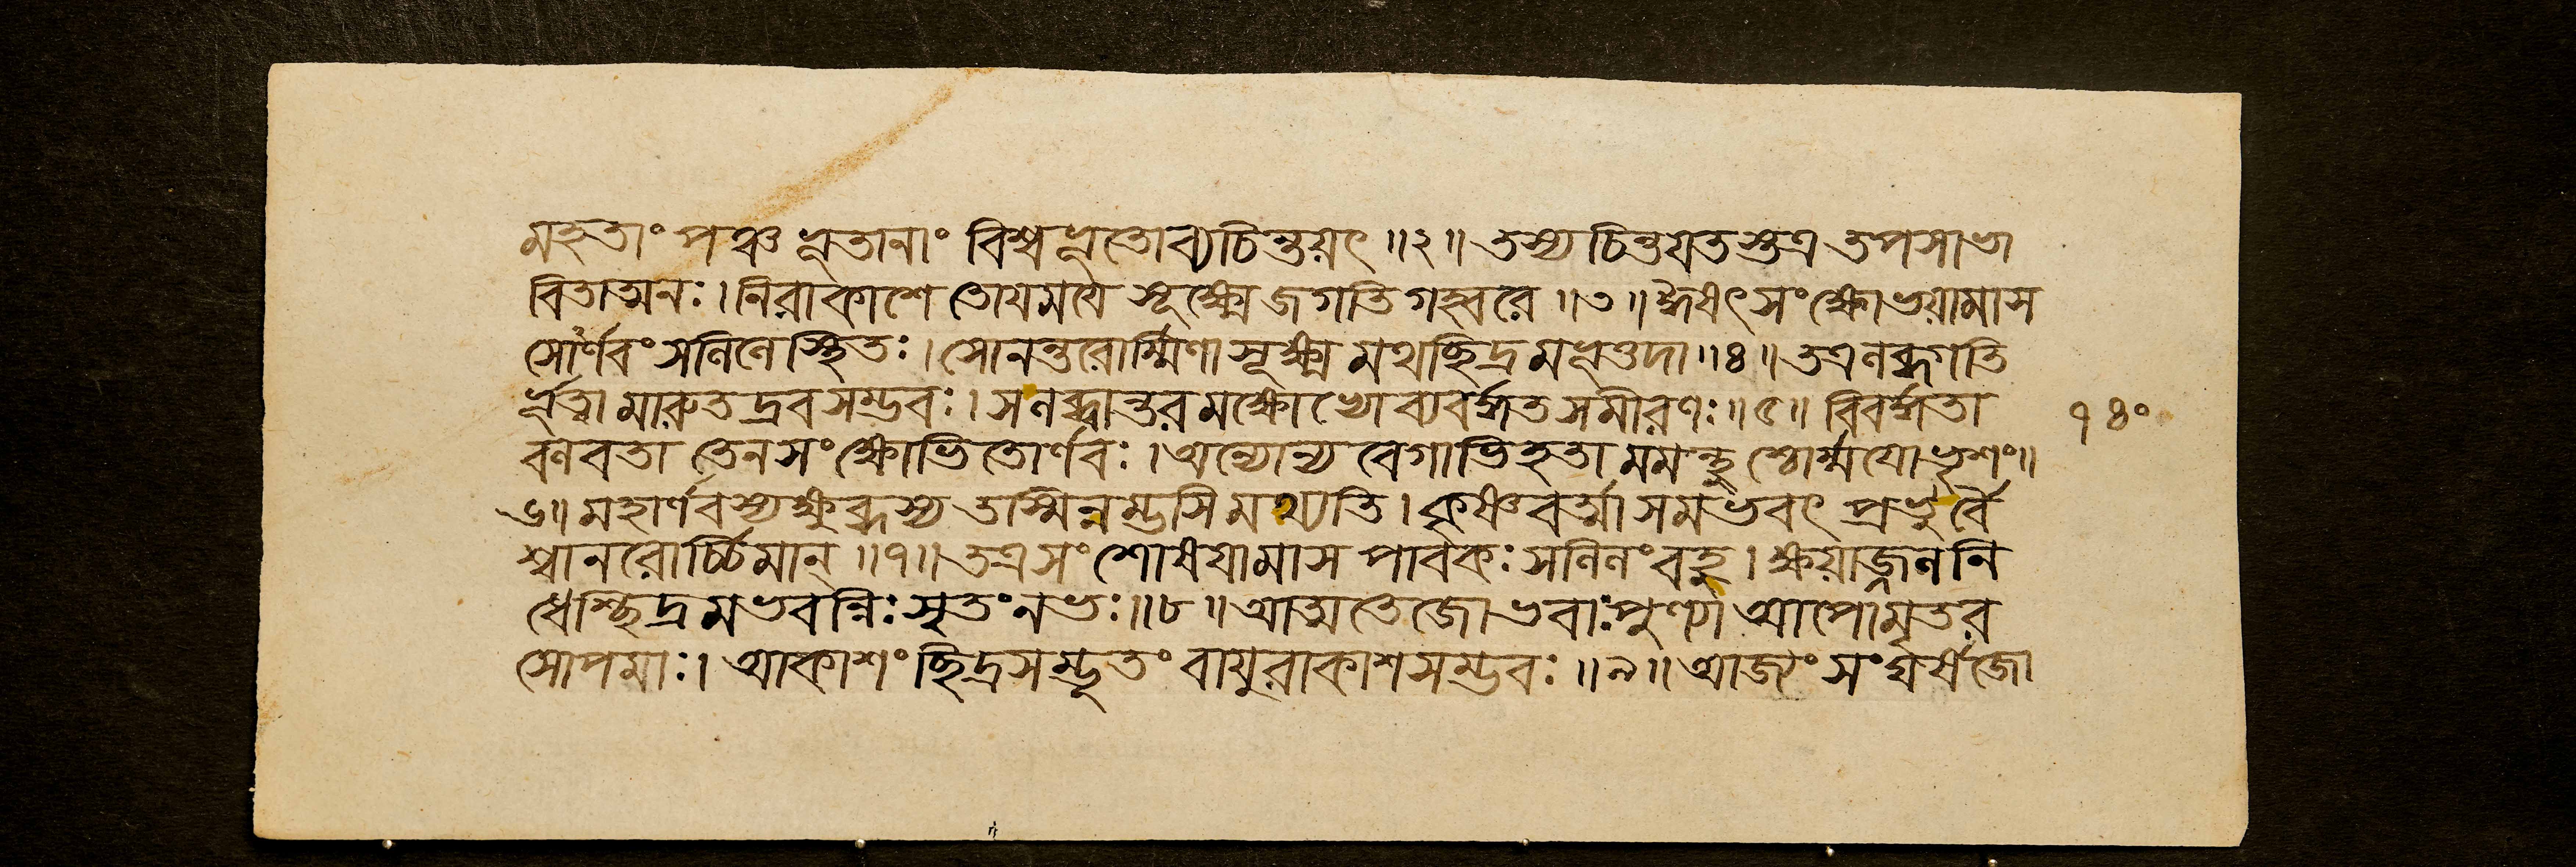 মহতাং পঞ্চভূতানাং বিশ্বভূতোব্যচিন্তয়ৎ ॥২॥ তস্য চিন্তয়তস্তত্র তপসাভা
বিতাত্মনঃ। নিরাকাশে তোয়ময়ে সূক্ষ্মে জগতি গহ্বরে ॥৩॥ ঈষৎ সংক্ষোভয়ামাস
সোর্ণবং সলিলে স্থিতঃ। সোনন্তরোর্ম্মিণা সূক্ষ্মমথচ্ছিদ্রমভূত্তদা ॥৪॥ তত্রলব্ধগতি
র্ভূত্বা মারুতদ্রবসম্ভবঃ। সলব্ধ্বান্তরমক্ষোভ্যো ব্যবর্দ্ধত সমীরণঃ ॥৫॥ বিবর্দ্ধতা
৭৪০
বলবতা তেনসংক্ষোভিতোর্ণবঃ। অন্যোন্যবেগাভিহতা মমন্থুশ্চোর্ম্ময়োভৃশং॥
৬॥ মহার্ণবস্যক্ষুব্ধস্য তস্মিন্নম্ভসি মথ্যতি। কৃষ্ণবর্ত্মা সমভবৎ প্রভুর্বৈ
শ্বানরোর্চ্চিমান্ ॥৭॥ তত্রসংশোষয়ামাস পাবকঃ সলিলংবহু। ক্ষয়াজ্জলনি
ধেশ্ছিদ্রমভবন্নিঃসৃতংনভঃ॥৮॥ আত্মতেজোভবাঃপুণ্যা আপোমৃতর
সোপমাঃ। আকাশং ছিদ্রসম্ভূতং বায়ুরাকাশসম্ভবঃ ॥৯॥ আজ্যং সংঘর্ষজো